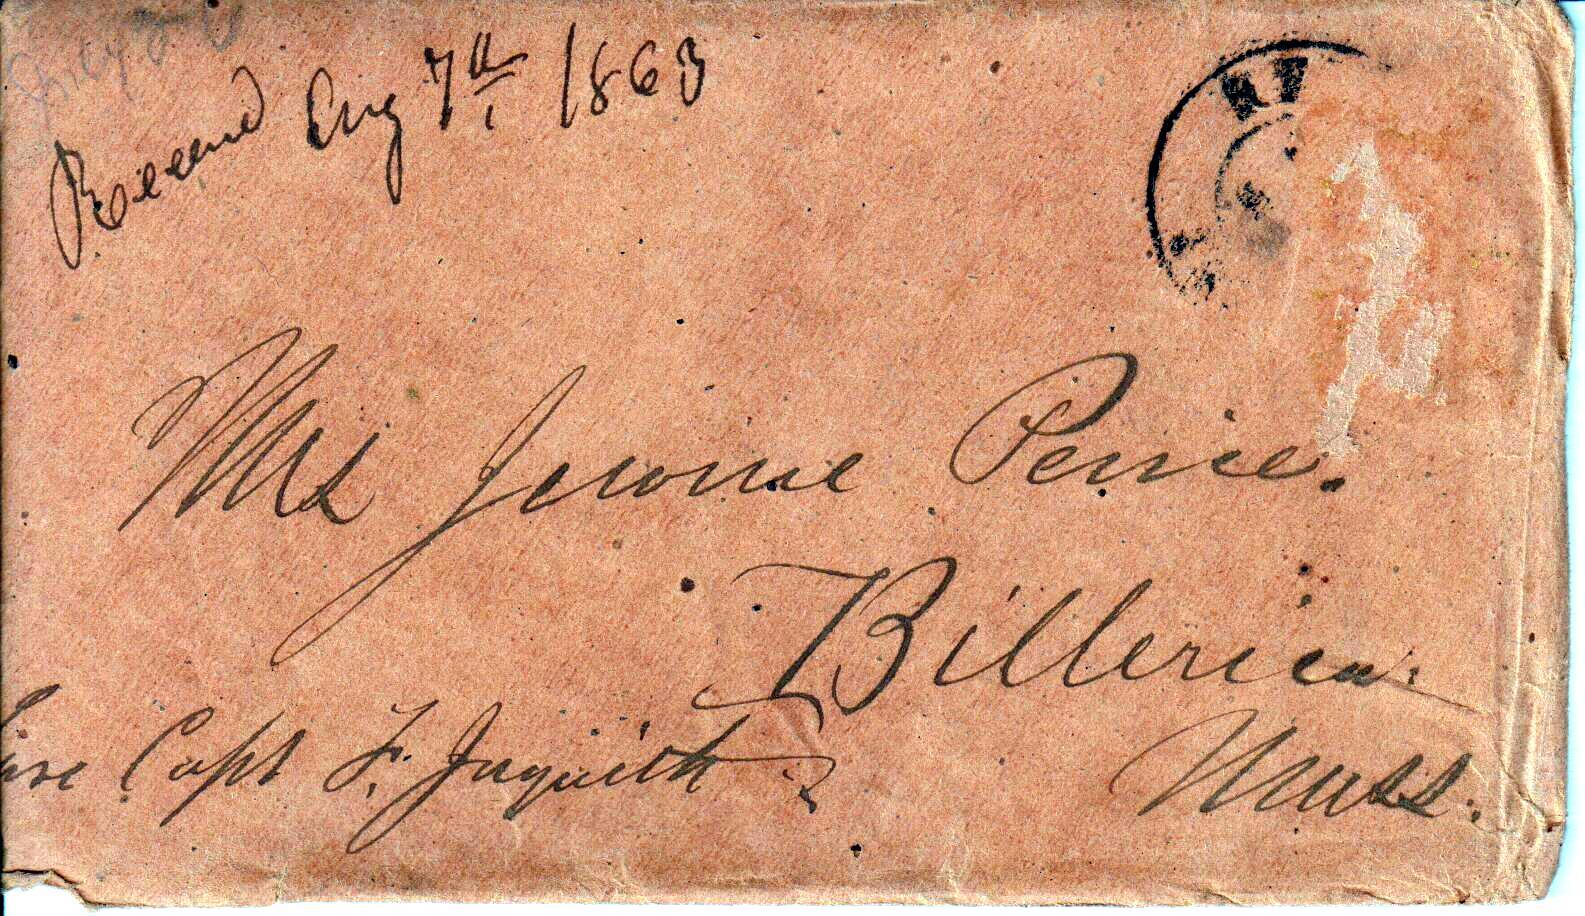 Receved Aug 7th 1863
Mrs Jerome Peirce.
Billerica
Mass.
Care Capt F. Jaquith